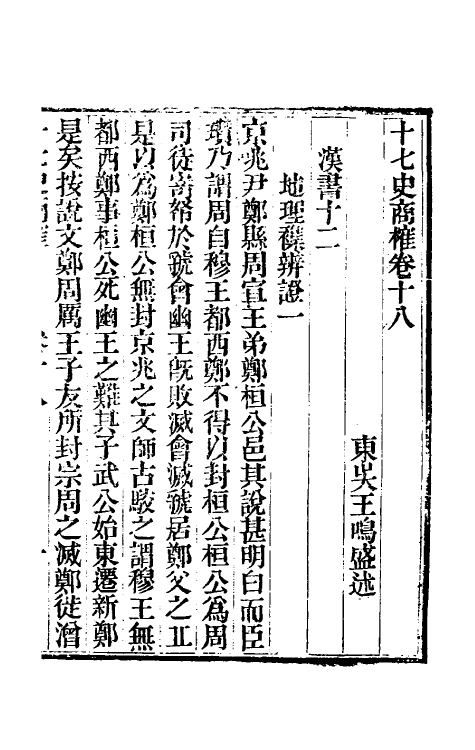 十七史商榷卷十八
東吳王鳴盛述
漢書十二
地理襍辨證一
京兆尹鄭縣周宣王弟鄭桓公邑其說甚明白而臣
瓚乃謂周自穆王都西鄭不得以封桓公桓公爲周
司徒寄帑於虢會幽王旣敗滅會滅虢居鄭父之丘
是以爲鄭桓公無封京兆之文師古駮之謂穆王無
都西鄭事桓公死幽王之難其子武公始東遷新鄭
是矣按說文鄭周厲王子友所封宗周之滅鄭徙潧